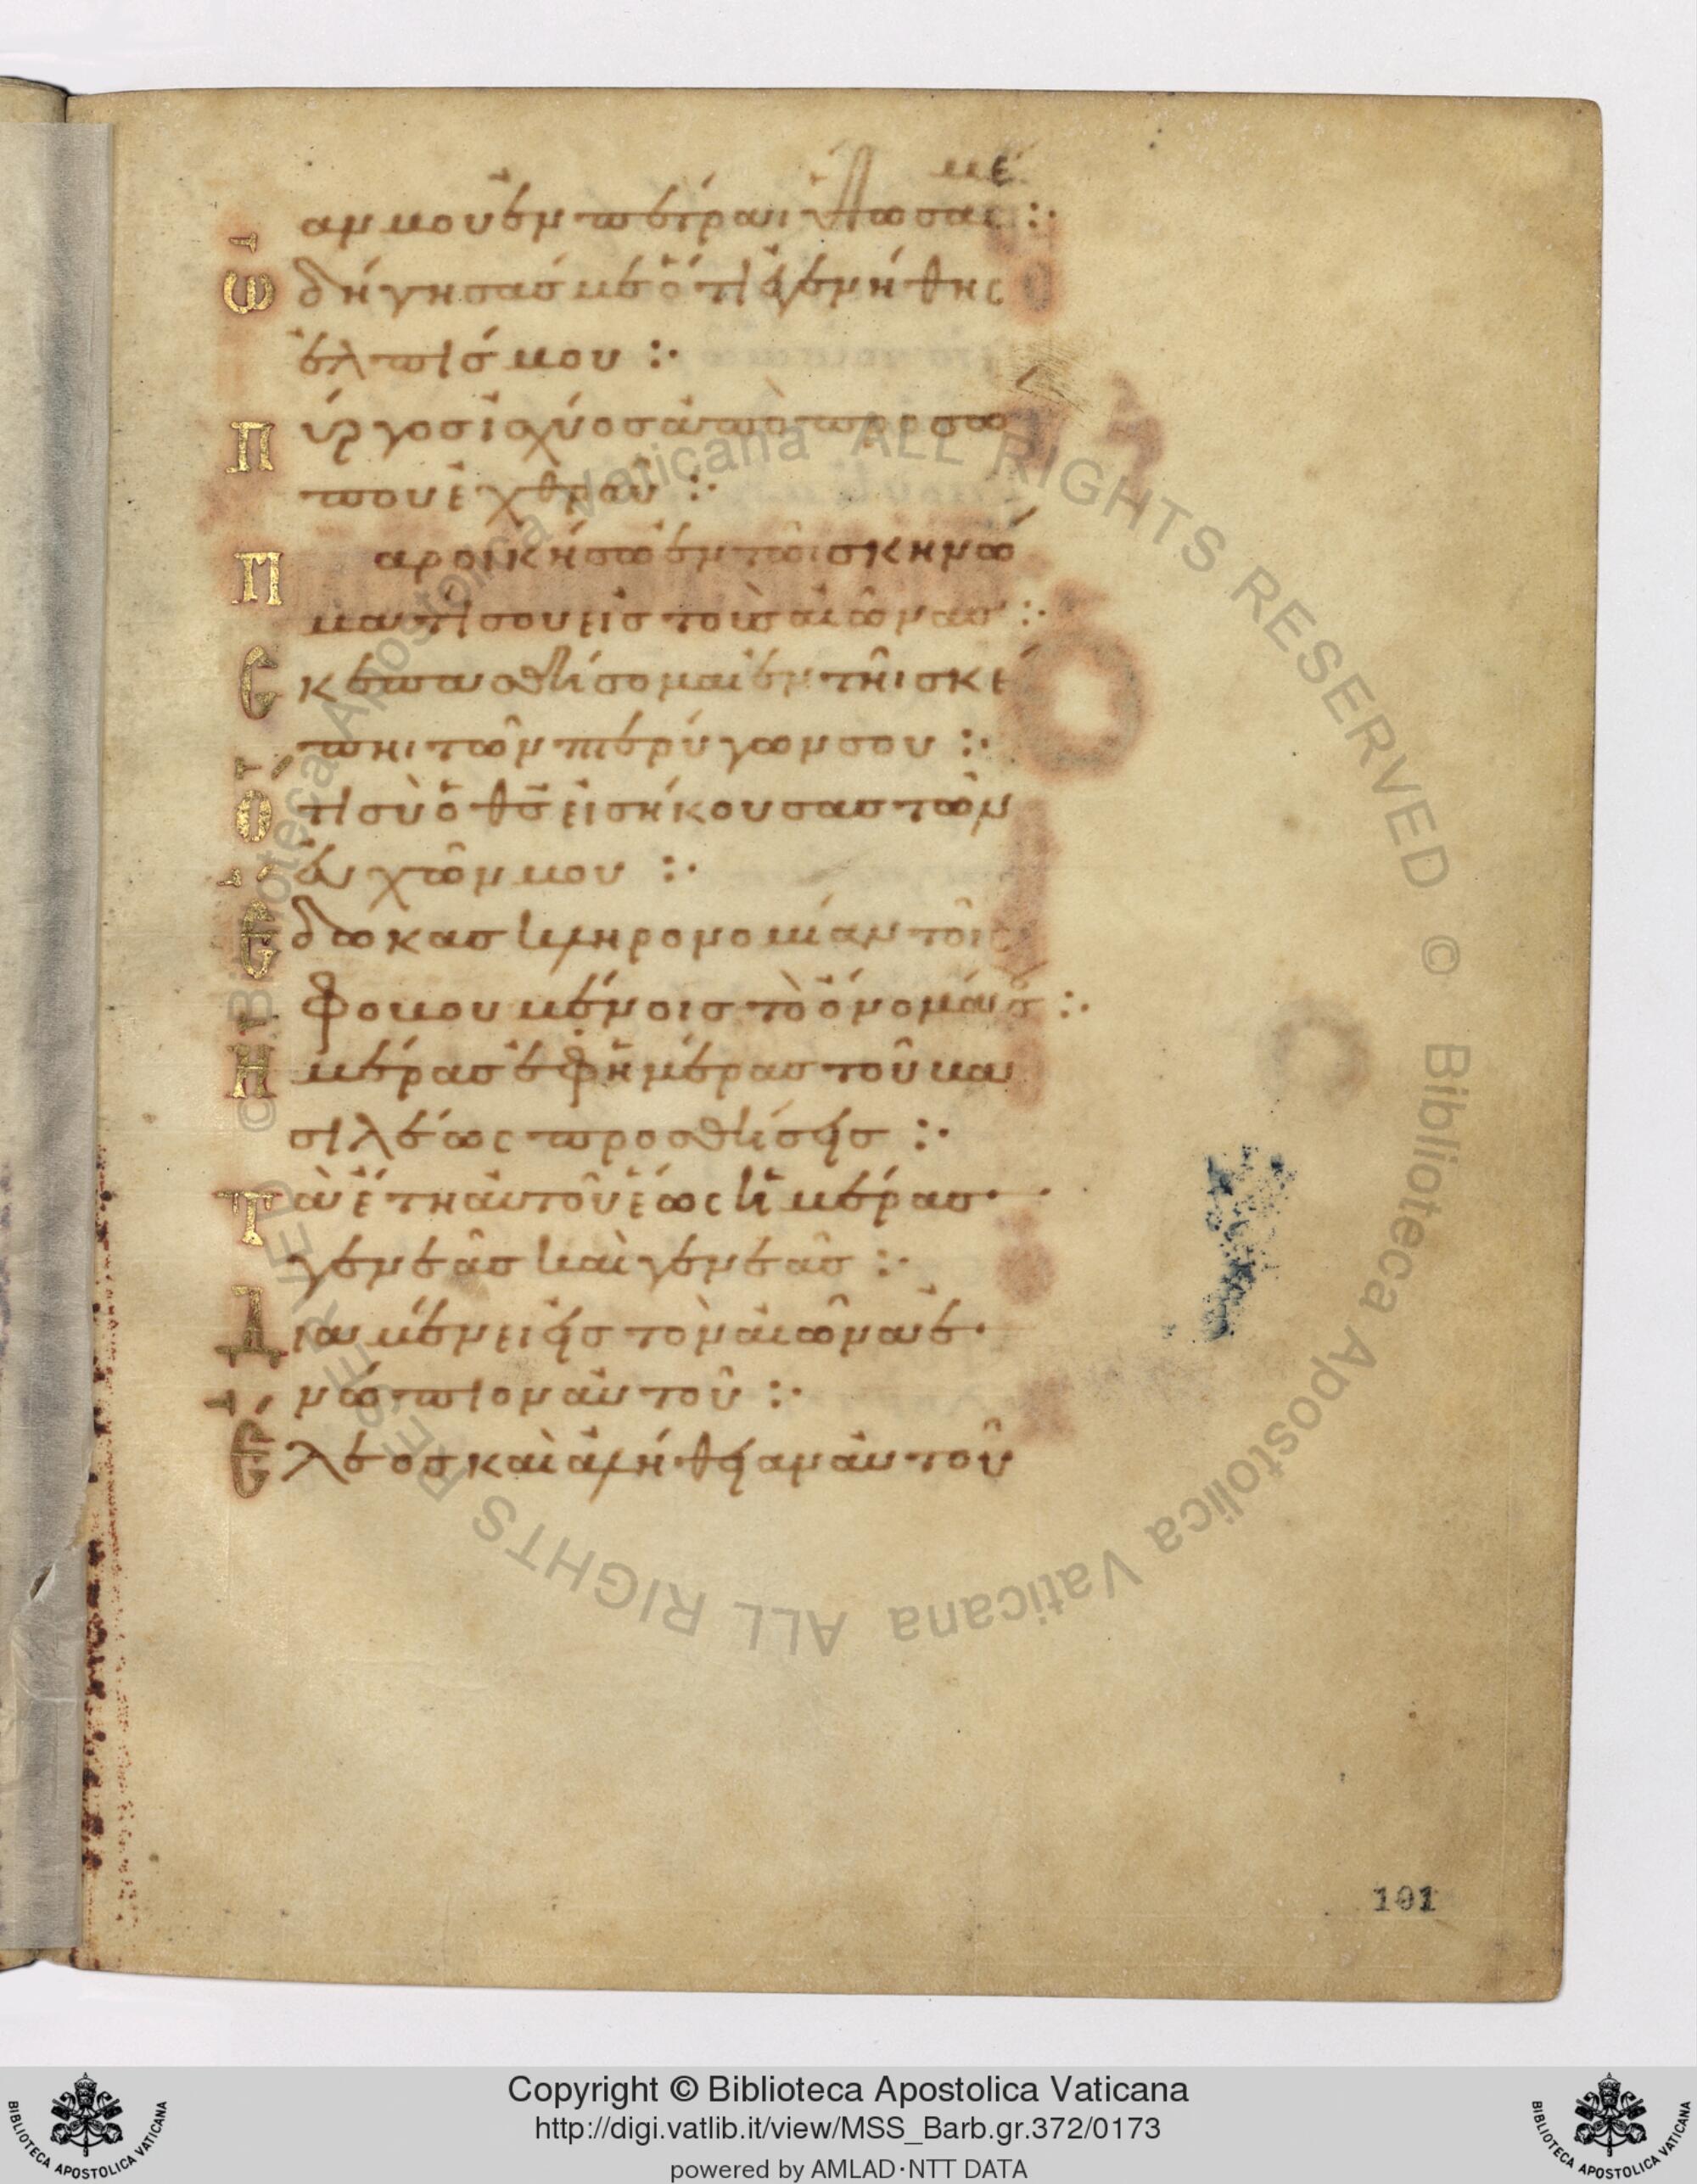 με
αν μου ἐν πέτραι ὕψωσας :·
Ὡδήγησάς με ὅτι ἐγενήθης
ἐλπίς μου :·
Πύργος ἰσχύος ἀπὸ προσώ
που ἐχθροῦ :·
Παροικήσω ἐν τῶι σκηνώ
ματί σου εἰς τοὺς αἰῶνας :·
Σκεπασθήσομαι ἐν τῆι σκέ
πηι τῶν πτερύγων σου :·
Ὅτι σὺ ὁ θς εἰσήκουσας τῶν
εὐχῶν μου :·
Ἔδωκας κληρονομίαν τοῖς
φοβουμένοις τὸ ὄνομά σου :·
Ἡμέρας ἐφ' ἡμέρας τοῦ βα
σιλέως προσθήσεις :·
Τὰ ἔτη αὐτοῦ ἕως ἡμέρας·
γενεᾶς καὶ γενεᾶς :·
Διαμένει εἰς τὸν αἰῶνα ἐ·
νώπιον αὐτοῦ :·
Ἔλεος καὶ ἀλήθειαν αὐτοῦ
101
ALL RIGHTS RESERVED © Biblioteca Apostolica Vaticana ALL RIGHTS RESERVED © Biblioteca Apostolica Vaticana
BIBLIOTECA APOSTOLICA VATICANA
Copyright © Biblioteca Apostolica Vaticana
http://digi.vatlib.it/view/MSS_Barb.gr.372/0173
powered by AMLAD·NTT DATA
BIBLIOTECA APOSTOLICA VATICANA